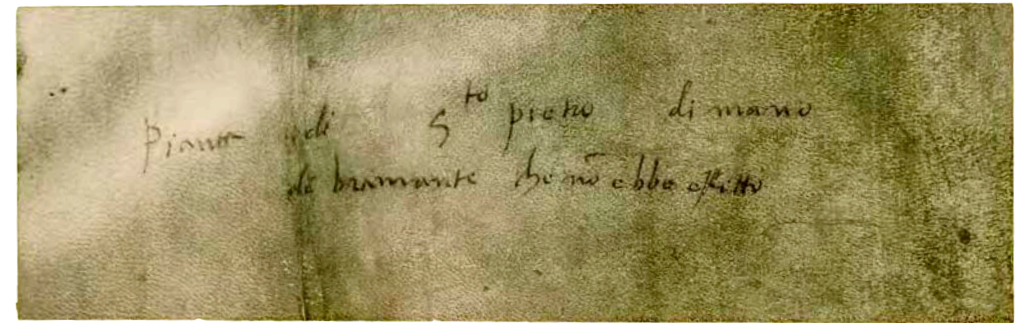 Pianta di Sto pietro di mano
di bramante che nō ebbe effetto